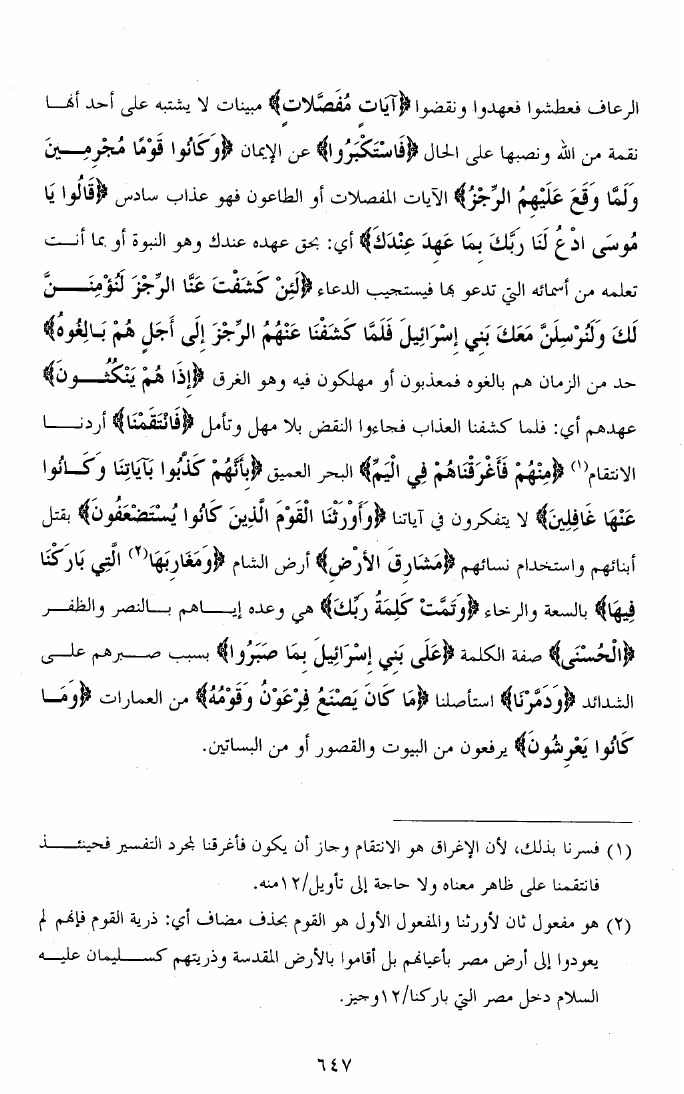 الرعاف فعطشوا فعهدوا ونقضوا ﴿آيَاتٍ مُفَصَّلاتٍ﴾ مبينات لا يشتبه على أحد أنهـا
نقمة من الله ونصبها على الحال ﴿فَاسْتَكْبَرُوا﴾ عن الإيمان ﴿وَكَانُوا قَوْمًا مُجْرِمِـــينَ
وَلَمَّا وَقَعَ عَلَيْهِمُ الرِّجْزُ﴾ الآيات المفصلات أو الطاعون فهو عذاب سادس ﴿قَالُوا يَا
مُوسَى ادْعُ لَنَا رَبَّكَ بِمَا عَهِدَ عِنْدَكَ﴾ أي: بحق عهده عندك وهو النبوة أو بما أنــت
تعلمه من أسمائه التي تدعو بها فيستجيب الدعاء ﴿لَئِنْ كَشَفْتَ عَنَّا الرِّجْزَ لَنُؤْمِنَــــنَّ
لَكَ وَلَنُرْسِلَنَّ مَعَكَ بَنِي إِسْرَائِيلَ فَلَمَّا كَشَفْنَا عَنْهُمُ الرِّجْزَ إِلَى أَجَلٍ هُمْ بَـالِغُوهُ﴾
حد من الزمان هم بالغوه فمعذبون أو مهلكون فيه وهو الغرق ﴿إِذَا هُمْ يَنْكُثُـــونَ﴾
عهدهم أي: فلما كشفنا العذاب فجاءوا النقض بلا مهل وتأمل ﴿فَانْتَقَمْنَا﴾ أردنـــا
الانتقام(١) ﴿مِنْهُمْ فَأَغْرَقْنَاهُمْ فِي الْيَمِّ﴾ البحر العميق ﴿بِأَنَّهُمْ كَذَّبُوا بِآيَاتِنَا وَكَـانُوا
عَنْهَا غَافِلِينَ﴾ لا يتفكرون في آياتنا ﴿وَأَوْرَثْنَا الْقَوْمَ الَّذِينَ كَانُوا يُسْتَضْعَفُونَ﴾ بقتل
أبنائهم واستخدام نسائهم ﴿مَشَارِقَ الأَرْضِ﴾ أرض الشام ﴿وَمَغَارِبَهَا(٢) الَّتِي بَارَكْنَا
فِيهَا﴾ بالسعة والرخاء ﴿وَتَمَّتْ كَلِمَةُ رَبِّكَ﴾ هي وعده إيـــاهم بـــالنصر والظفــر
﴿الْحُسْنَى﴾ صفة الكلمة ﴿عَلَى بَنِي إِسْرَائِيلَ بِمَا صَبَرُوا﴾ بسبب صــبرهم علــى
الشدائد ﴿وَدَمَّرْنَا﴾ استأصلنا ﴿مَا كَانَ يَصْنَعُ فِرْعَوْنُ وَقَوْمُهُ﴾ من العمارات ﴿وَمَــا
كَانُوا يَعْرِشُونَ﴾ يرفعون من البيوت والقصور أو من البساتين.
(١) فسرنا بذلك، لأن الإغراق هو الانتقام وجاز أن يكون فأغرقنا لمجرد التفسير فحينئــــذ
فانتقمنا على ظاهر معناه ولا حاجة إلى تأويل/١٢منه.
(٢) هو مفعول ثان لأورثنا والمفعول الأول هو القوم بحذف مضاف أي: ذرية القوم فإنهم لم
يعودوا إلى أرض مصر بأعيانهم بل أقاموا بالأرض المقدسة وذريتهم كســـليمان عليـــه
السلام دخل مصر التي باركنا/١٢وجيز.
٦٤٧